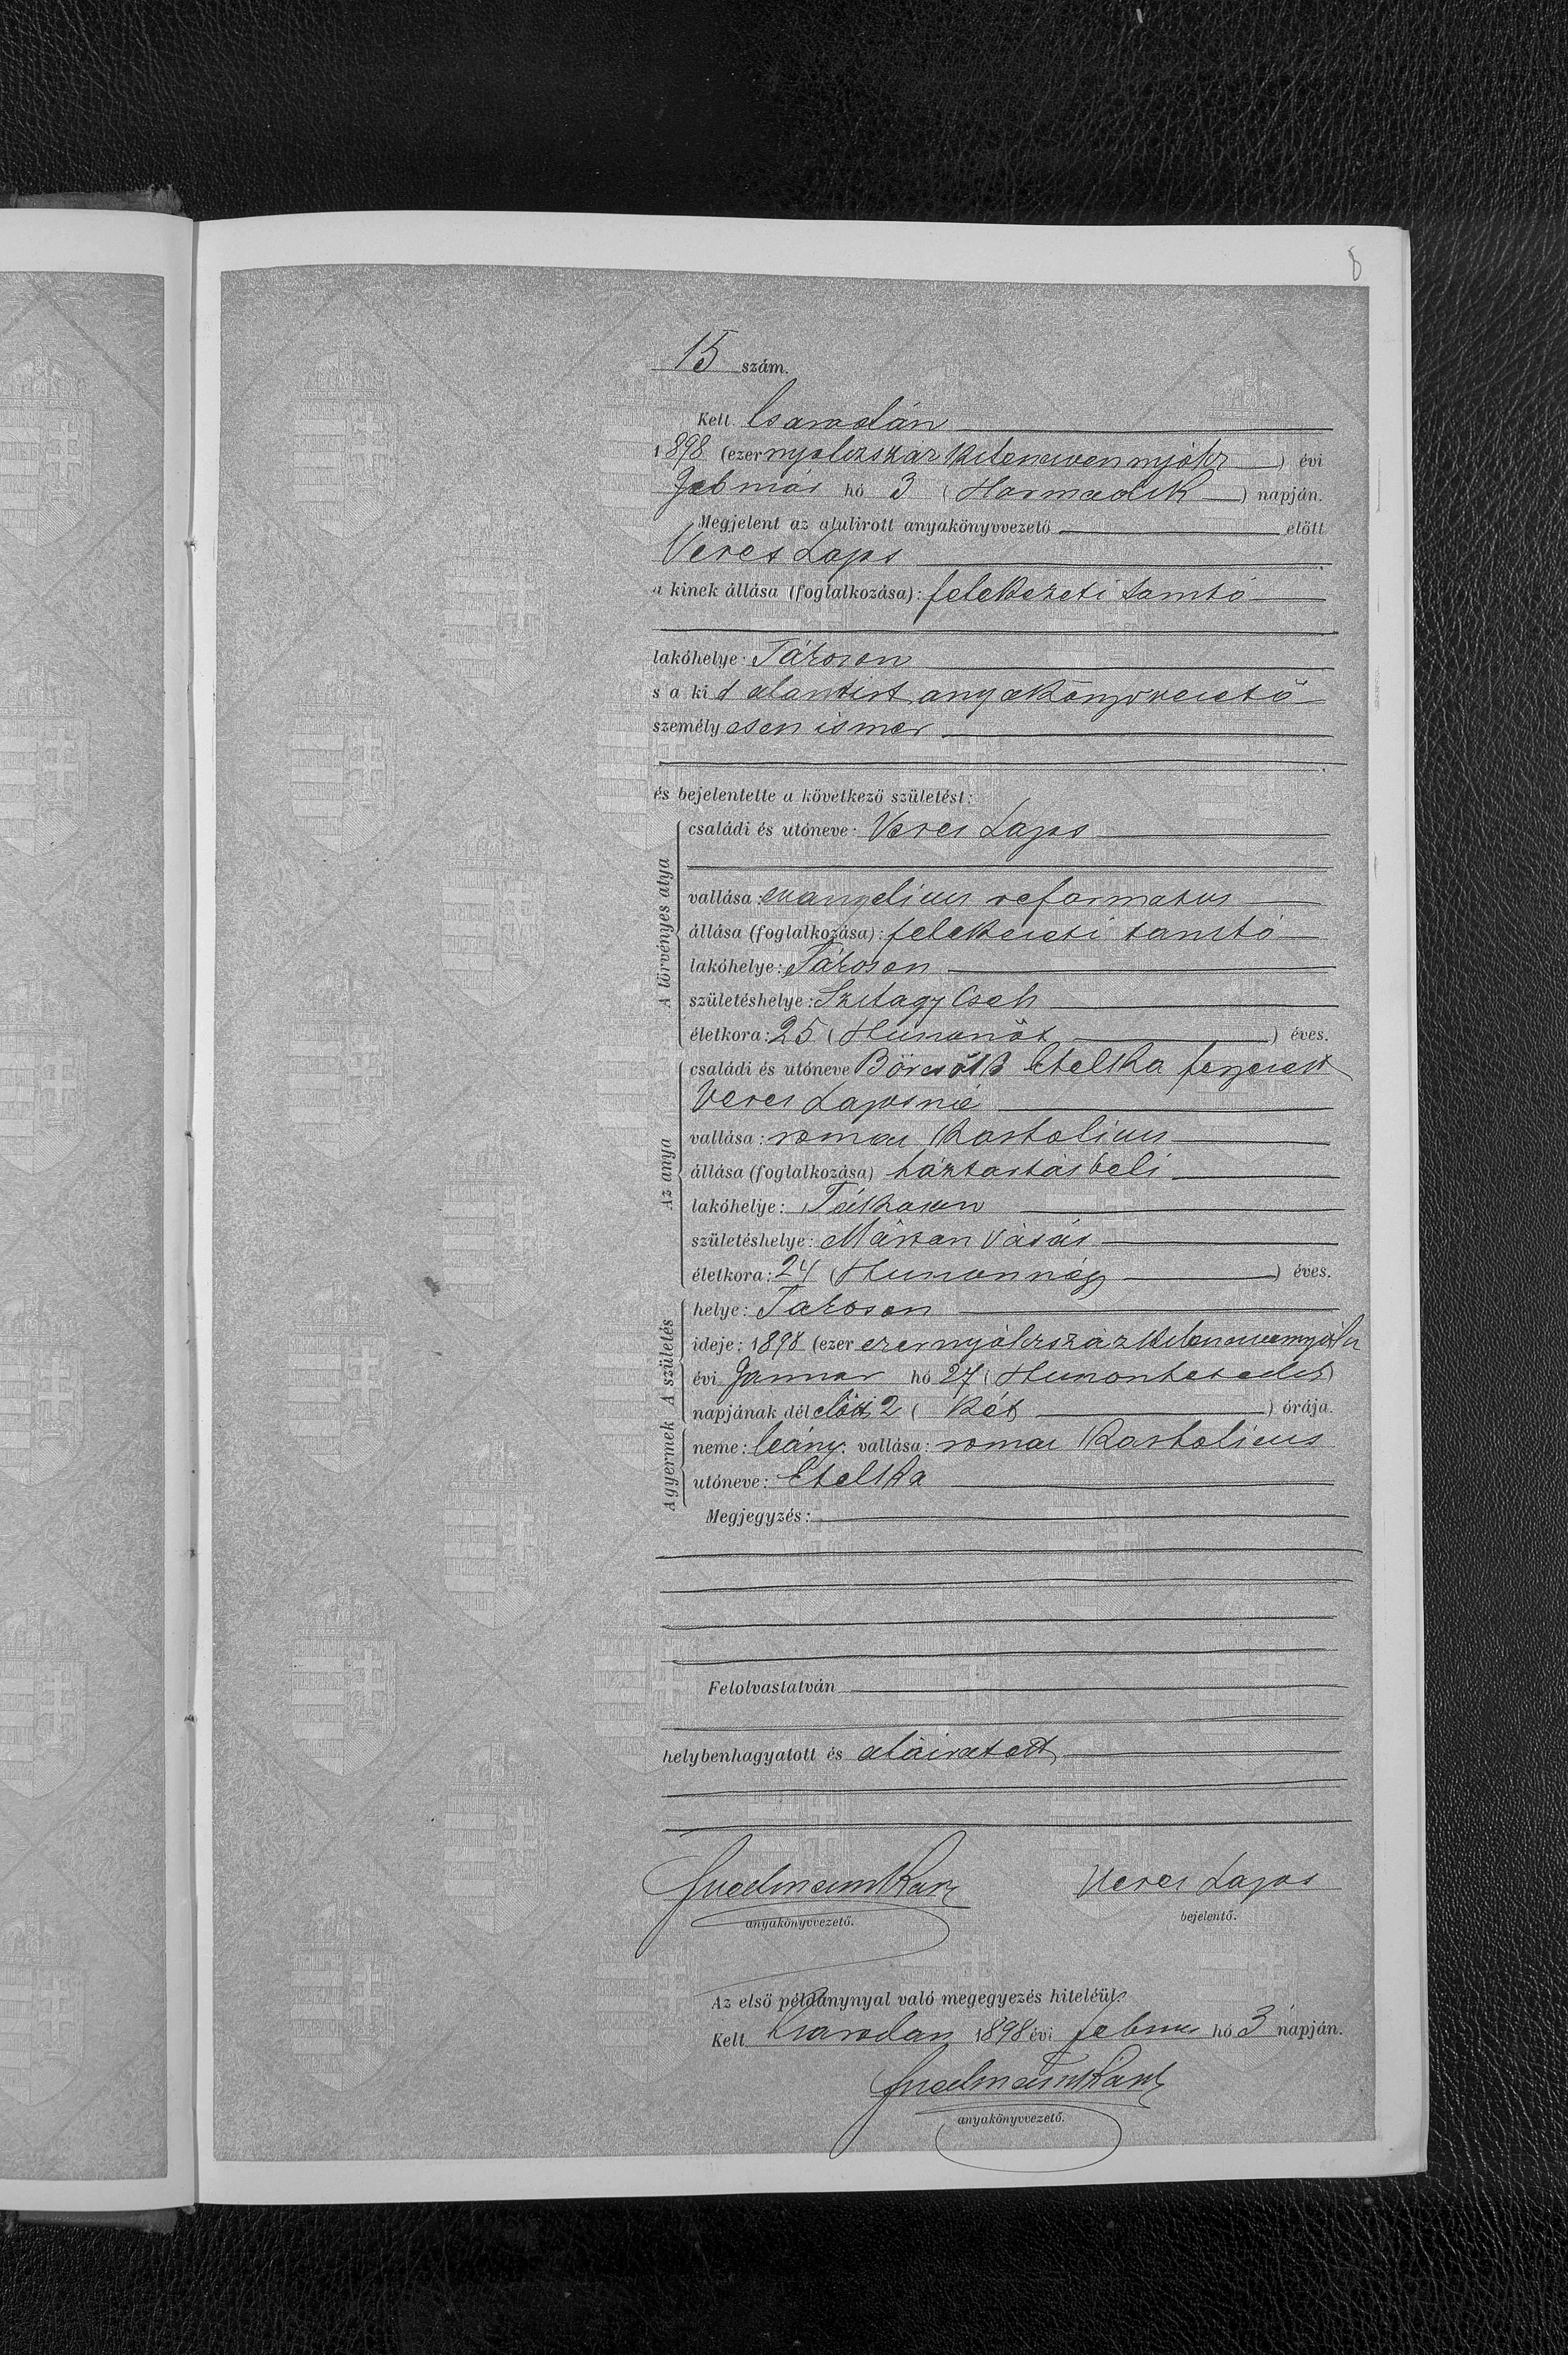 8
15 szám.
Kelt Csaradán
1898 (ezer nyolczszáz kilenczven nyolcz) évi
Február hó 3 (Harmadik) napján.
Megjelent az alulirott anyakönyvvezető előtt
Veres Lajos
a kinek állása (foglalkozása): felekezeti tanító
lakóhelye: Tákoson
s a kit alantirt anyakönyvvezető
személyesen ismer
és bejelentette a következő születést:
A törvényes atya
családi és utóneve: Veres Lajos
vallása: evangelicus reformatus
állása (foglalkozása): felekezeti tanító
lakóhelye: Tákoson
születéshelye: Szilágy Cseh
életkora: 25 (Huszonöt) éves.
Az anya
családi és utóneve Etelka férjezett
Veres Lajosné
vallása: romai katholicus
állása (foglalkozása) háztartásbeli
lakóhelye: Tákoson
születéshelye:
életkora: 24 (Huszonnégy) éves.
A születés
helye: Tákoson
ideje: 1898 (ezer ezernyolczszáz kilenczvennyolcz
évi Januar hó 27 (Huszonhetedik)
napjának délelőtt 2 (Két) órája.
A gyermek
neme: leány. vallása: romai katholicus
utóneve: Etelka
Megjegyzés:
Felolvastatván
helybenhagyatott és aláiratott
Veres Lajos
anyakönyvvezető.
bejelentő.
Az első példánynyal való megegyezés hiteléül.
Kelt Csaradan 1898 évi hó 3 napján.
anyakönyvvezető.